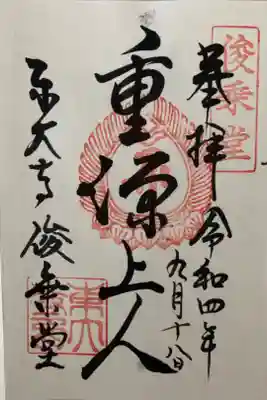 俊乗堂
奉拝 令和四年
九月十八日
重源上人
東大寺 俊乗堂